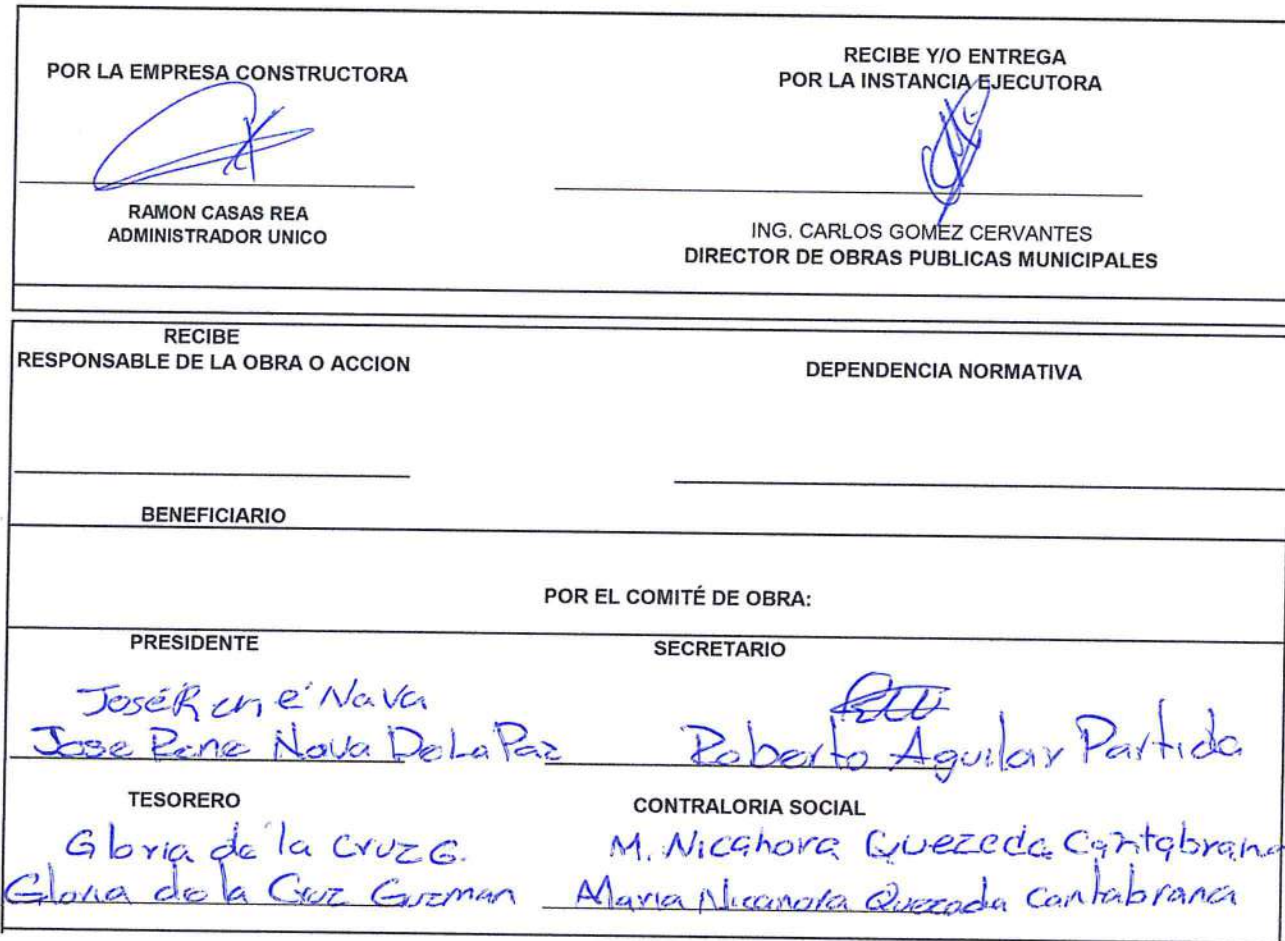 POR LA EMPRESA CONSTRUCTORA
RAMON CASAS REA
ADMINISTRADOR UNICO
RECIBE Y/O ENTREGA
POR LA INSTANCIA EJECUTORA
ING. CARLOS GOMEZ CERVANTES
DIRECTOR DE OBRAS PUBLICAS MUNICIPALES
RECIBE
RESPONSABLE DE LA OBRA O ACCION
BENEFICIARIO
DEPENDENCIA NORMATIVA
POR EL COMITÉ DE OBRA:
PRESIDENTE
José René Nava
Jose Rene Nava De La Paz
SECRETARIO
Roberto Aguilar Partida
TESORERO
Gloria de la Cruz G.
Gloria de la Cruz Guzman
CONTRALORIA SOCIAL
M. Nicanora Quezada Cantabrana
Maria Nicanora Quezada Cantabrana